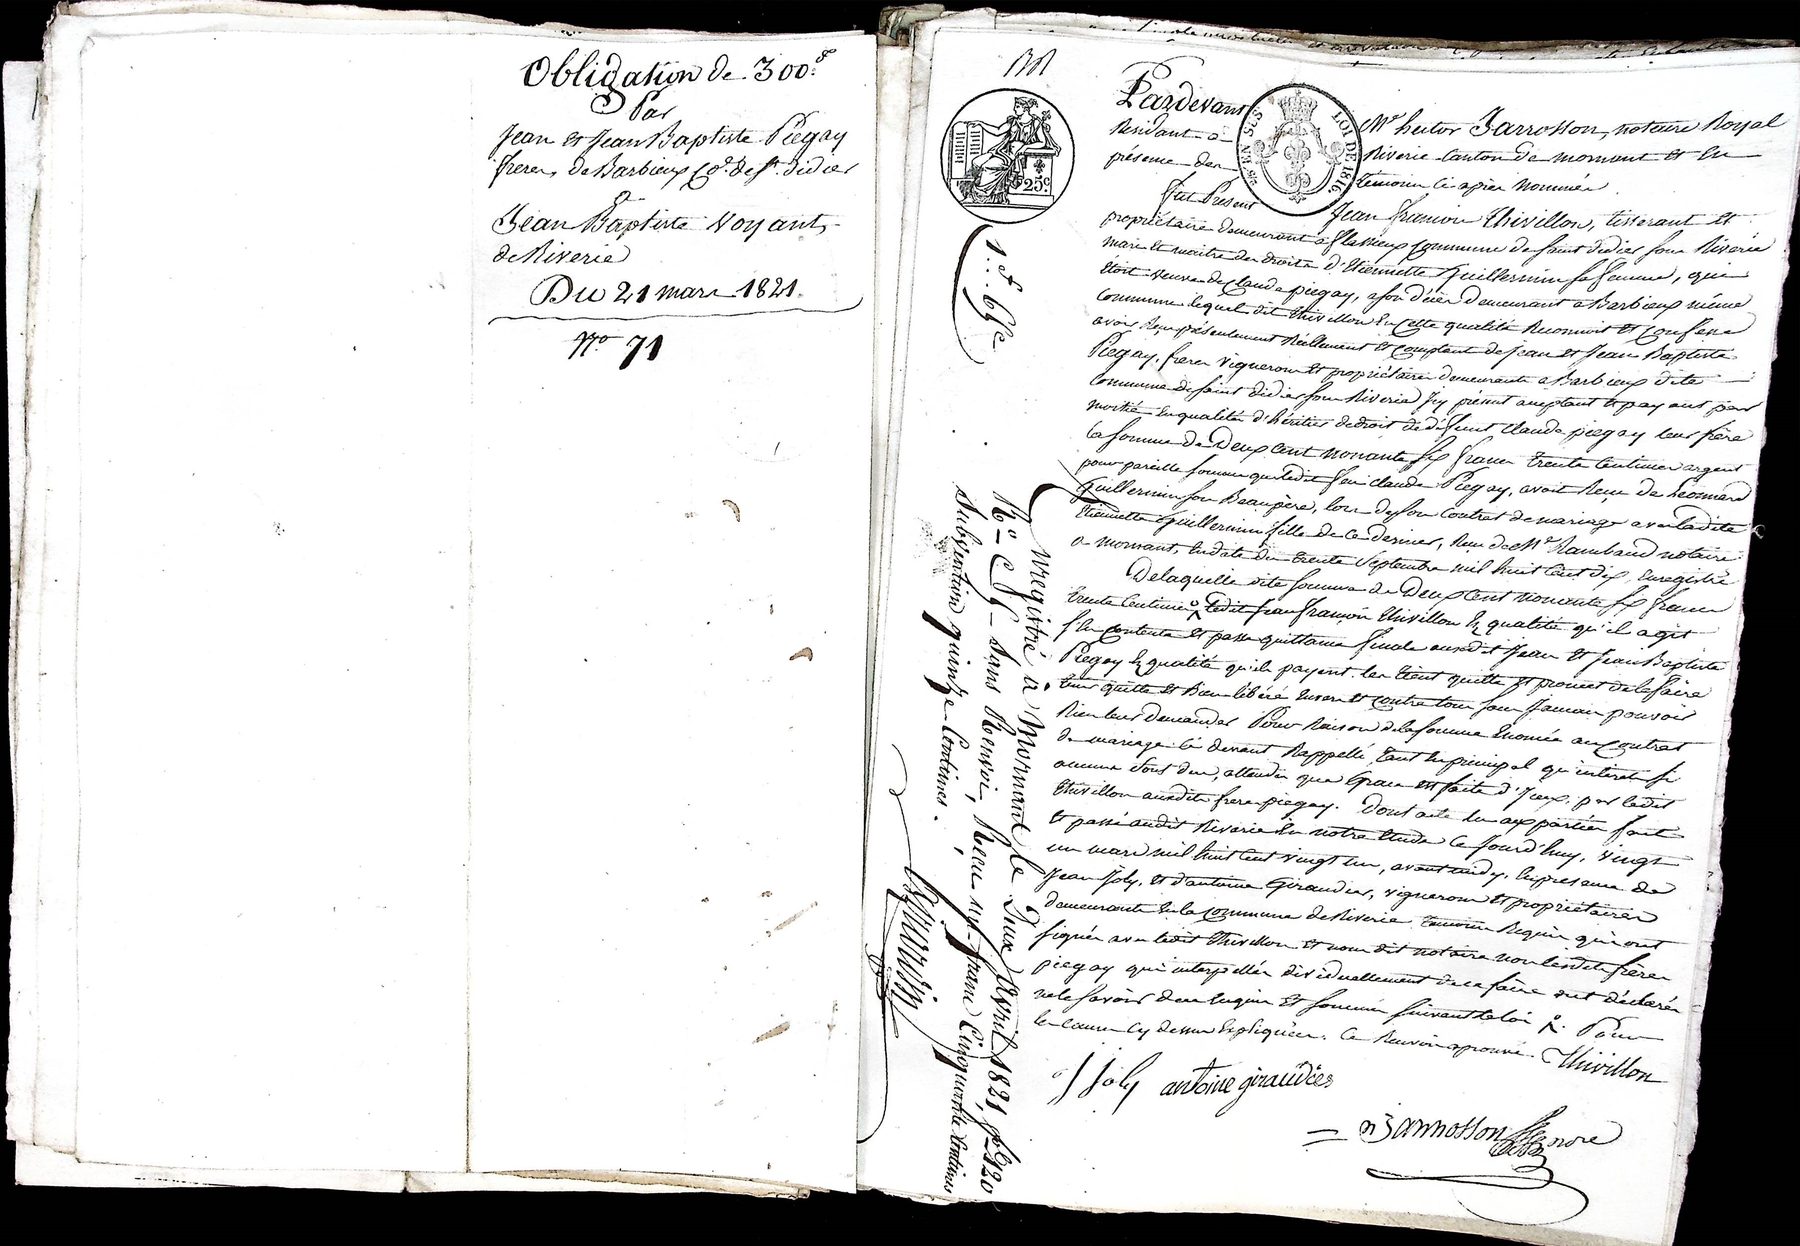 Obligation de 300f
Par
Jean et Jean Baptiste Piegay
freres de Barbieux Co.e de st. didier
a
Jean Baptiste Voyant
de Riverie
Du 21 mars 1821.
No. 71
25c
EN SUS
LOI DE 1816.
1.f 65c
Pardevant Me hector Jarrosson, notaire Royal
Residant a Riverie canton de mornant et en
présence des temoins ci apres nommés
fut Present Jean françois Thivillon, tisserant et
propriétaire demeurant a commune de saint didier sous Riverie
mari et maitre des droits d'Etiennette Guillermin sa femme, qui
étoit veuve de Claude piegay, a son décès demeurant a Barbieux même
commune lequel dit Thivillon en cette qualité Reconnoit et confesse
avoir Reçu présentement Réellement et comptant de jean et Jean Baptiste
Piegay, freres vignerons et propriétaires demeurants a Barbieux dite
commune de saint didier sous Riverie Icy présent acceptant et payant par
moitié en qualité d'héritiers de droit de défunt Claude piegay leur frère
la somme de Deux cent nonante six francs trente centimes argent
pour pareille somme que ledit feu claude Piegay, avoit Reçu de Leonnard
Guillermin son Beaupère, lors de son contrat de mariage avec ladite
Etiennette Guillermin fille de ce dernier, Reçu de Me Rambaud notaire
a mornant, en date du trente septembre mil huit cent dix, enregistré
De laquelle dite somme de Deux cent nonante six francs
trente centimes ledit Jean françois Thivillon En qualité qu'il agit
s'en contente et passe quittance finale auxdit Jean et Jean Baptiste
Piegay En qualité qu'ils payent. les tient quitte et promet de les faire
tenir quitte et Bien libéré envers et contre tous sans Jamais pouvoir
Rien leur demander Pour Raison de la somme Enoncée au contrat
de mariage ci devant Rappellé, tant en principal qu'intéret si
aucuns sont dus, attendu que Grace est faite d'Iceux par ledit
Thivillon auxdits freres piegay. Dont acte aux parties fait
et passé audit Riverie En notre Etude Ce Jourd'huy, vingt
un mars mil huit cent vingt un, avant midy, En présence de
Jean Joly, et d'antoine Giraudier, vignerons et propriétaires
demeurants En la commune de Riverie temoins Requis qui ont
signés avec ledit Thivillon et nous dit notaire non lesdits frères
piegay qui interpellés dividuellement de ce faire ont déclaré
ne le savoir de ce Enquis et sommés suivant la loi. Pour
les causes cy dessus Expliquées. Ce Renvoi aprouvé. Thivillon
J Joly antoine giraudier
Jarrosson nore
Enregistré à Mornant le Deux Avril 1821, fo 120
Ro C. - sans Renvoi, Reçu un franc Cinquante Centimes
subvention quinze Centimes.